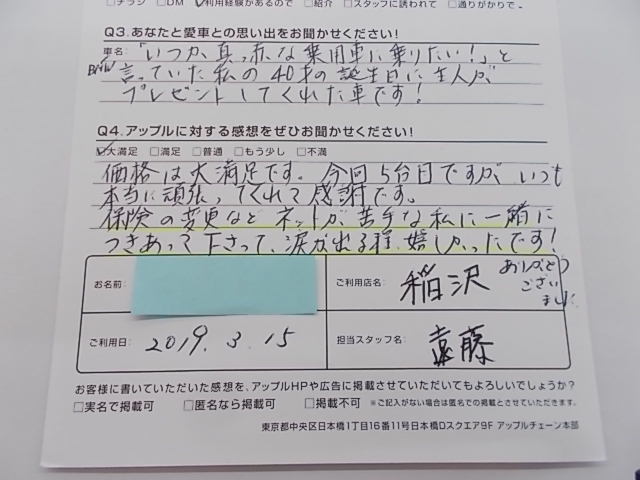 □チラシ □DM ☑利用経験があるので □紹介 □スタッフに誘われて □通りがかりで
Q3.あなたと愛車との思い出をお聞かせください!
車名:「いつか真っ赤な乗用車に乗りたい!」と
BMW 言っていた私の40才の誕生日に主人が
プレゼントしてくれた車です!
Q4.アップルに対する感想をぜひお聞かせください!
☑大満足 □満足 □普通 □もう少し □不満
価格は大満足です。今回5台目ですが、いつも
本当に頑張ってくれて感謝です。
保険の変更などネットが苦手な私に一緒に
つきあって下さって、涙が出る程、嬉しかったです!
お名前:
ご利用店名: 稲沢
ありがとう
ござい
ました
ご利用日: 2019.3.15
担当スタッフ名: 遠藤
お客様に書いていただいた感想を、アップルHPや広告に掲載させていただいてもよろしいでしょうか?
□実名で掲載可 □匿名なら掲載可 □掲載不可 ※ご記入がない場合は匿名での掲載とさせていただきます。
東京都中央区日本橋1丁目16番11号日本橋Dスクエア9F アップルチェーン本部